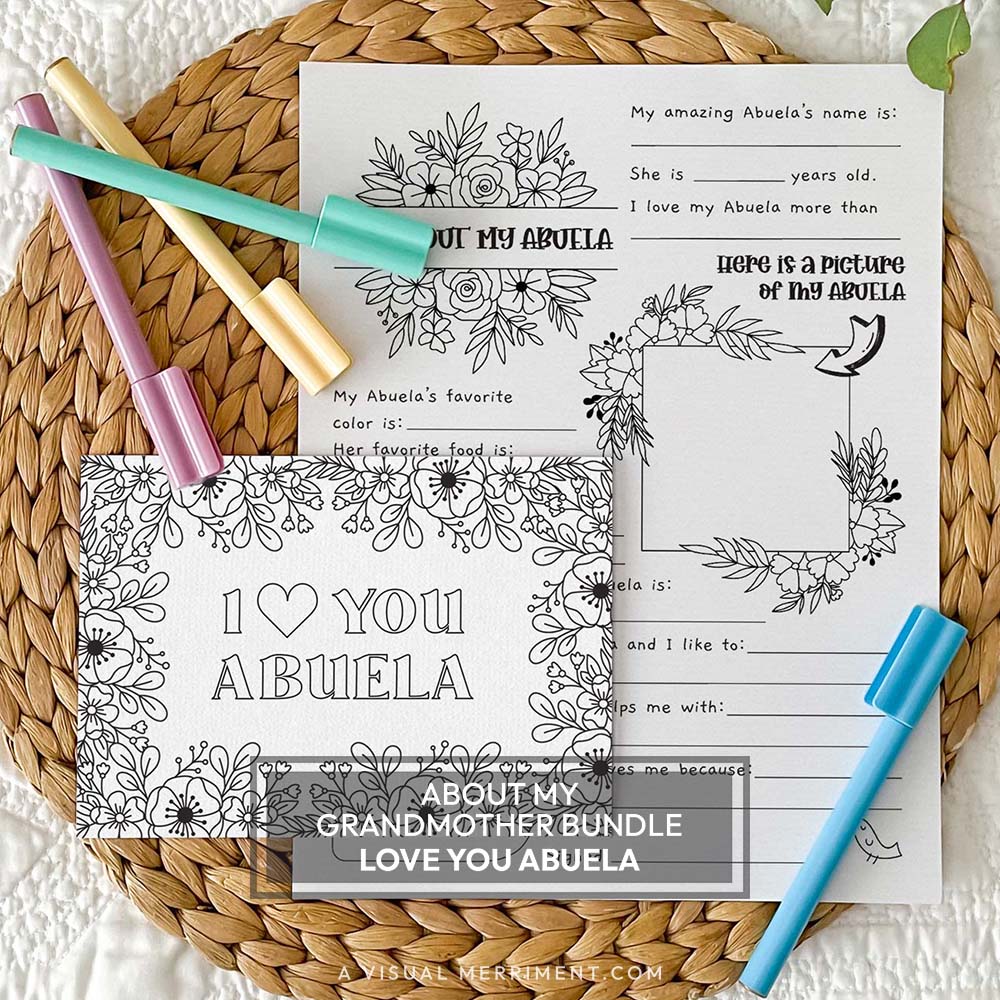 My amazing Abuela's name is:
She is years old.
I love my Abuela more than
MY ABUELA
Here is a picture
of my ABUELA
My Abuela's favorite
color is:
Her favorite food is:
is:
and I like to:
me with:
me because:
I ♡ YOU
ABUELA
ABOUT MY
GRANDMOTHER BUNDLE
LOVE YOU ABUELA
A VISUAL MERRIMENT.COM